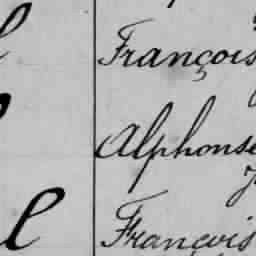 François
Alphonse
l François